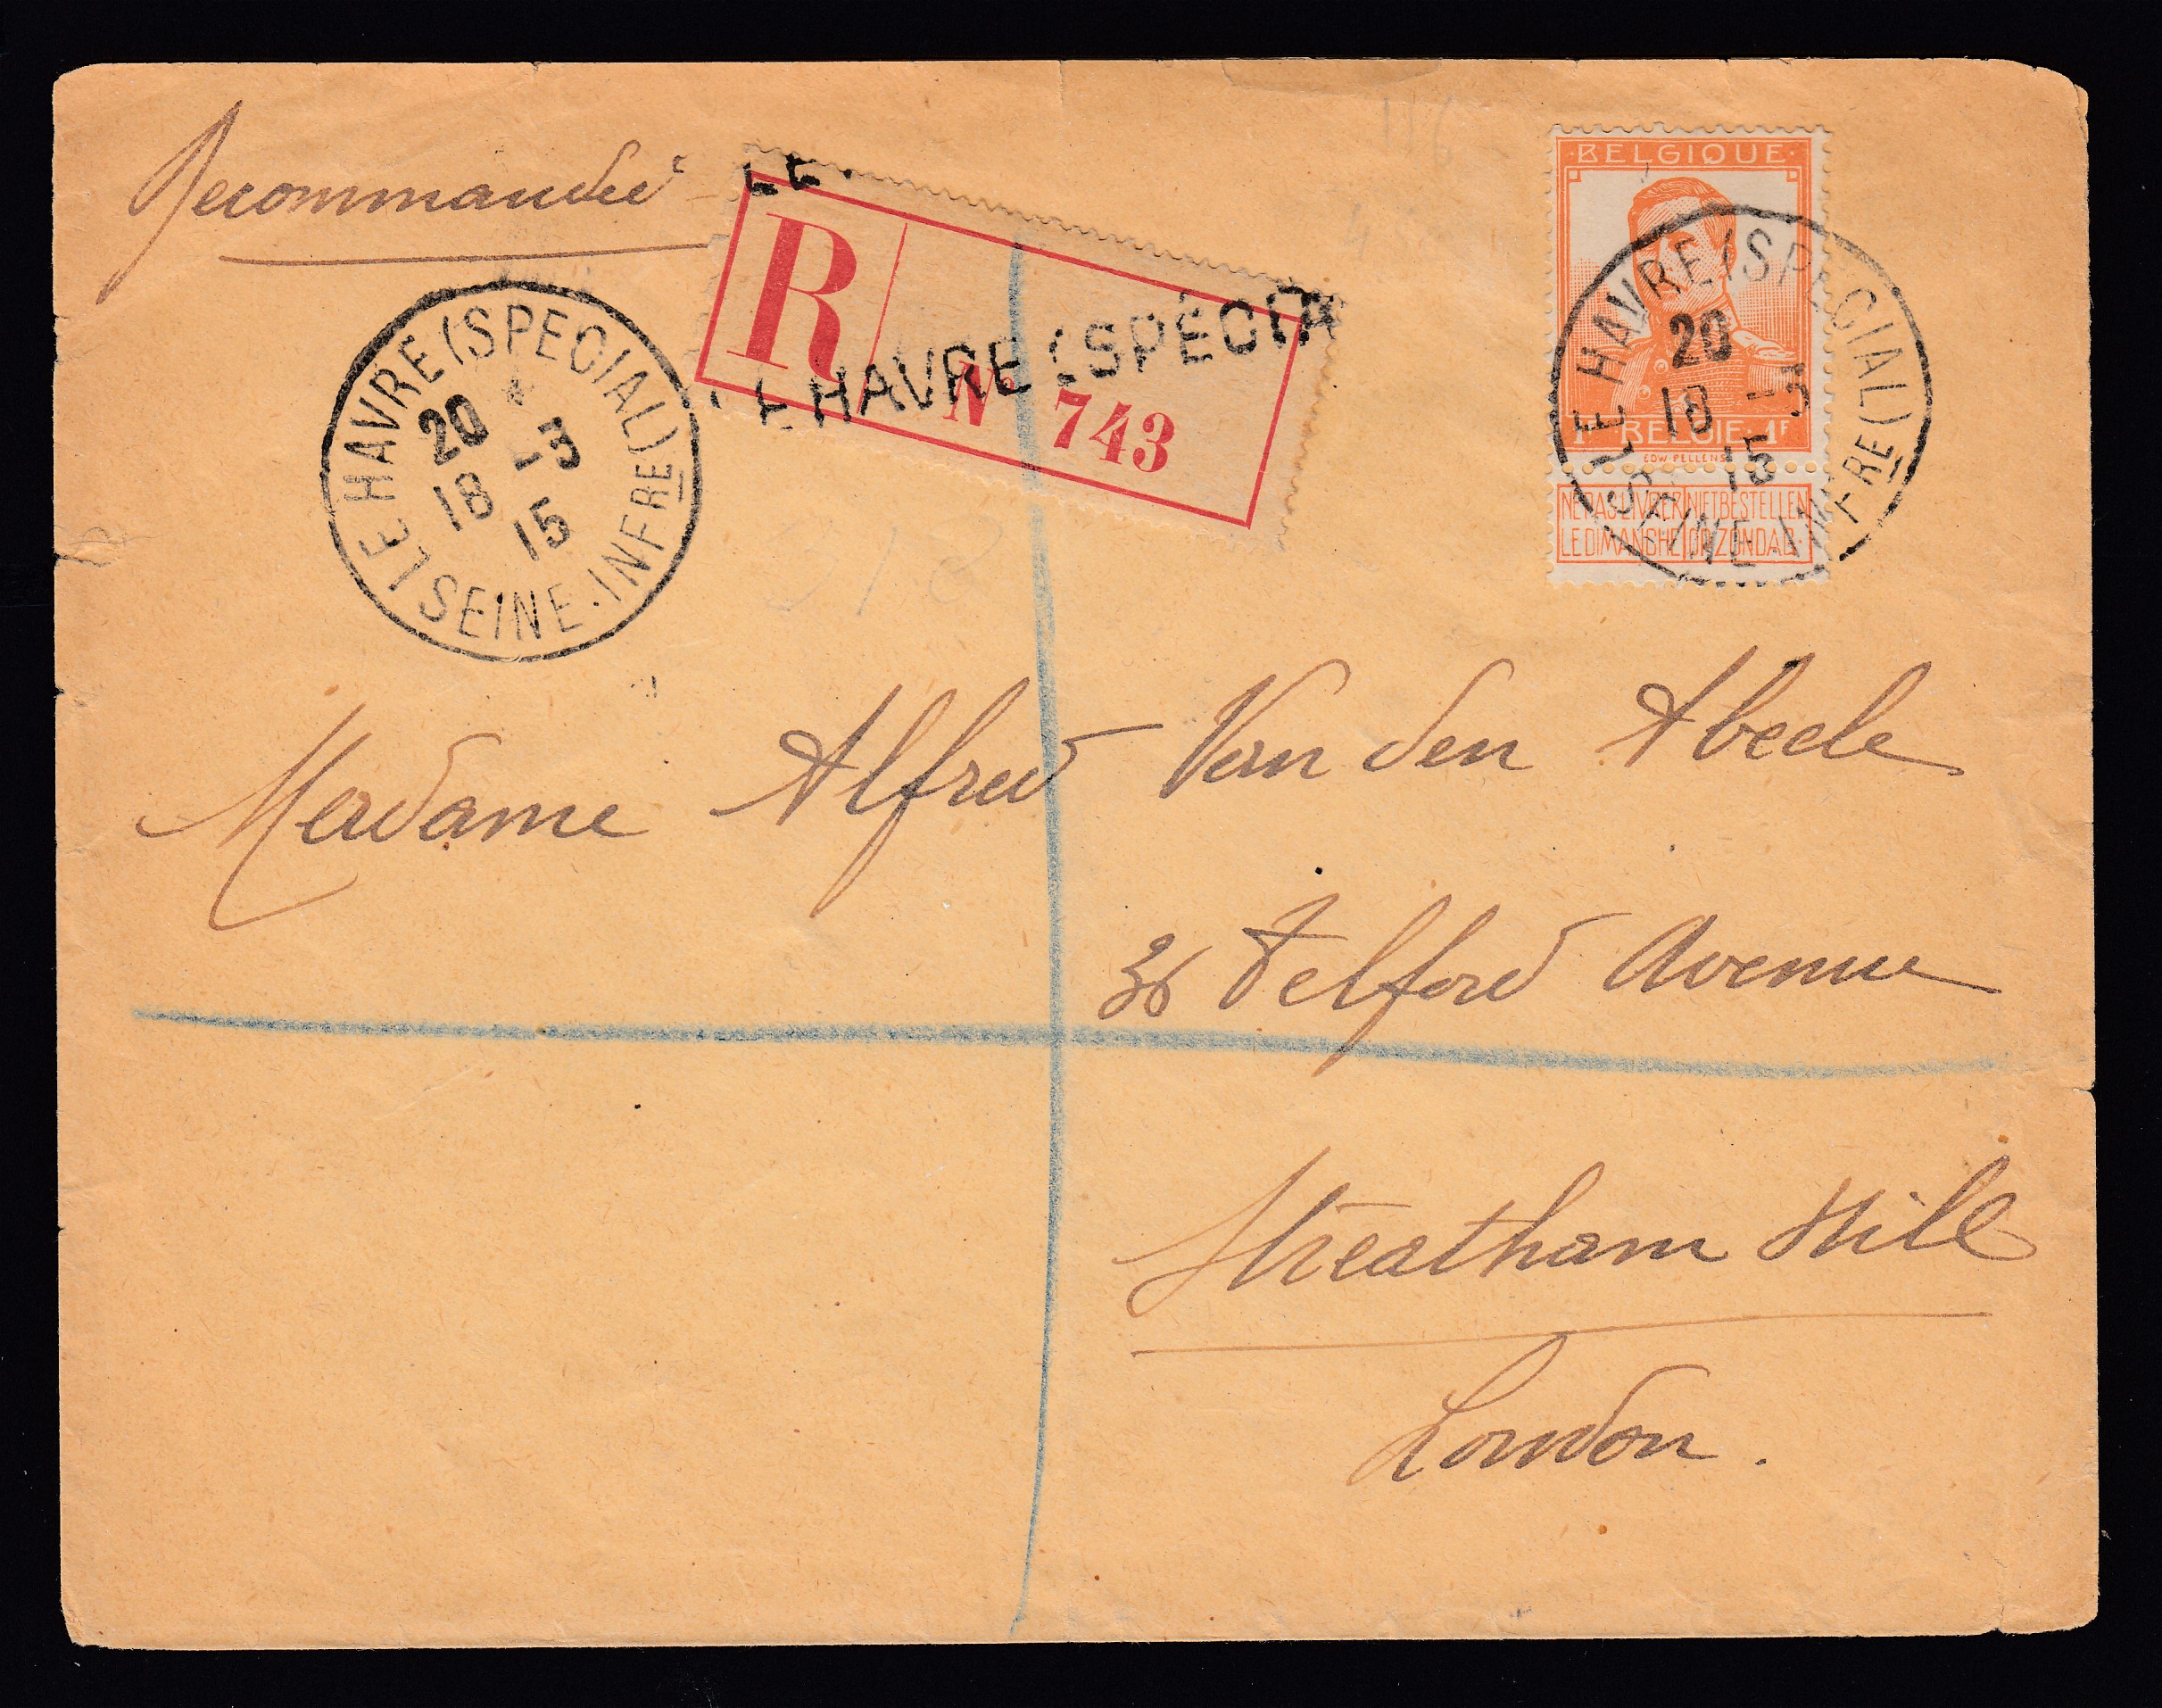 Recommandée
LE HAVRE (SPECIAL)
20 -3
18 15
SEINE-INFRE
R
No 743
LE HAVRE (SPÉCIA
BELGIQUE
1F BELGIE 1F
EDW PELLENS
NE PAS LIVRER NIET BESTELLEN
LE DIMANCHE OP ZONDAG
LE HAVRE (SPECIAL)
20 -3
18 15
SEINE-INFRE
Madame Alfred Van den Abeele
36 Telford Avenue
Streatham Hill
London.